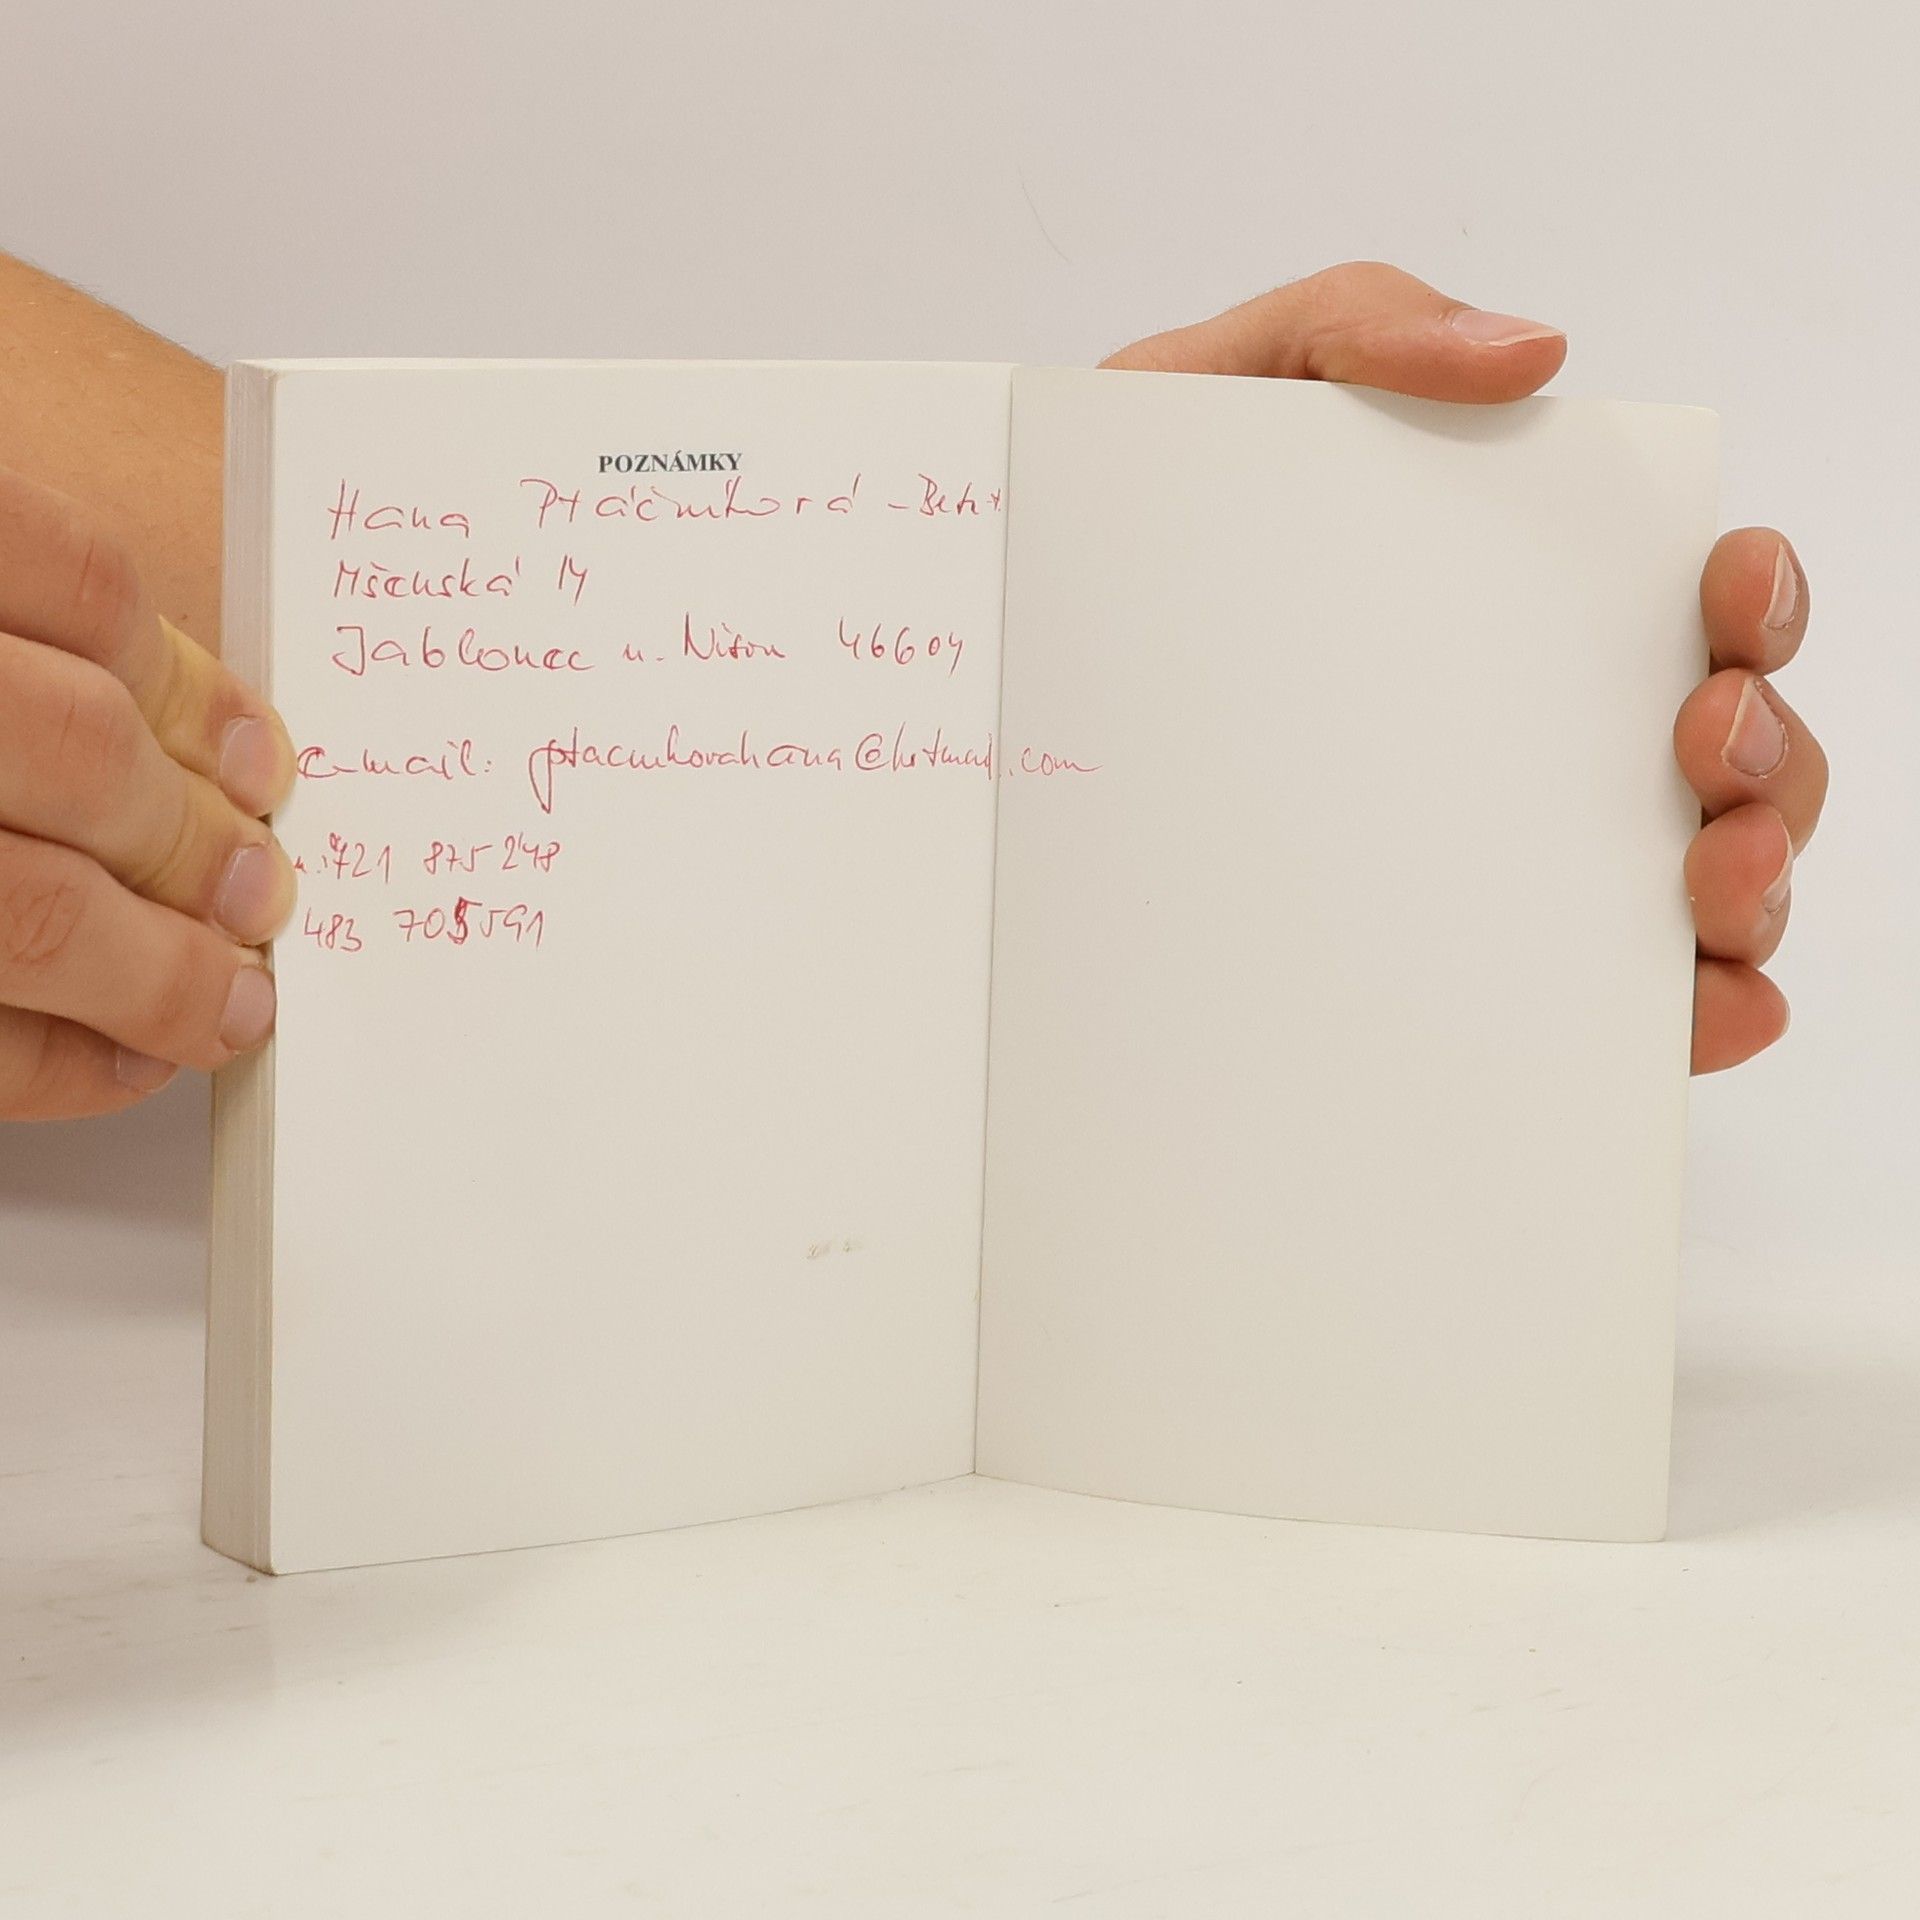 POZNÁMKY
Hana Ptáčníková -
Mšenská 14
Jablonec n. Nisou 46604
e-mail: ptacnikovahana@hotmail.com
721 875 248
483 705591